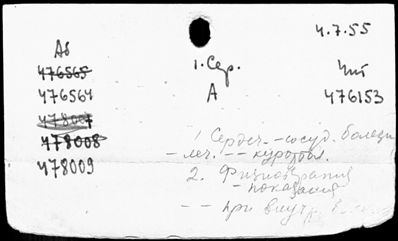 4.7.55
Аб
1. Сер.
Чит
476565
А
476564
476153
478007
478008
478009
1 Сердеч.-сосуд. болезни
- леч. -- курорты.
2. Физиотерапия
- показания
-- при внутр.